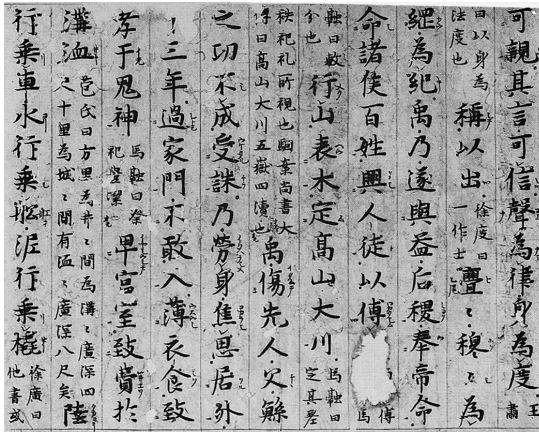 可親其言可信聲為律身為度王肅
曰以身為法度也稱以出徐廣曰一作士亹〻穆〻為
綱為紀禹乃遂與益后稷奉帝命
命諸侯百姓興人徒以傅
融曰敷分也行山表木定高山大川馬融曰定其差
秩祀礼所視也駰案尚書大傳曰高山大川五嶽四瀆也禹傷先人父鯀
之功不成受誅乃勞身焦思居外
十三年過家門不敢入薄衣食致
孝于鬼神馬融曰祭祀豊潔卑宮室致費於
溝洫苞氏曰方里為井〻間為溝〻廣深四尺十里為城〻間有洫〻廣深八尺矣陸
行乗車水行乗舩泥行乗橇徐廣曰他書或